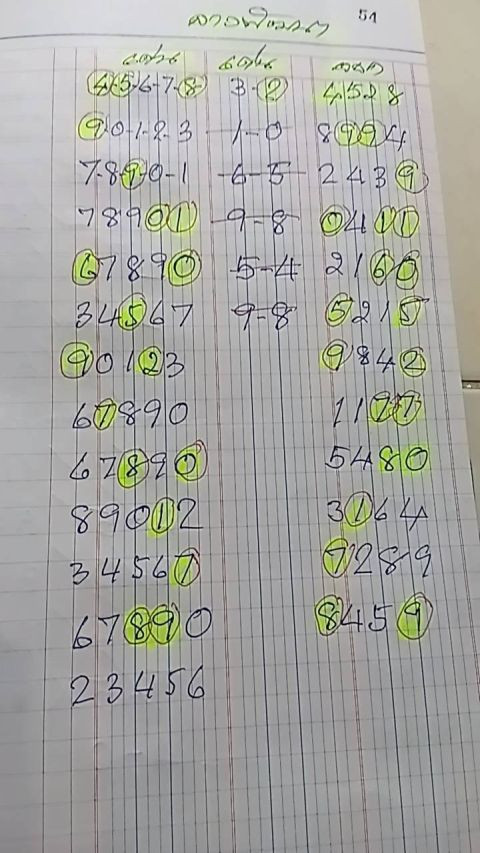 ลาวพัฒนา 51
เด่น เด่น ออก
4-5-6-7-8 3-2 4528
9-0-1-2-3 1-0 8994
7-8-9-0-1 6-5 2439
78901 9-8 0411
67890 5-4 2160
34567 9-8 5215
90123 9842
67890 1177
67890 5480
89012 3164
34567 7289
67890 8459
23456